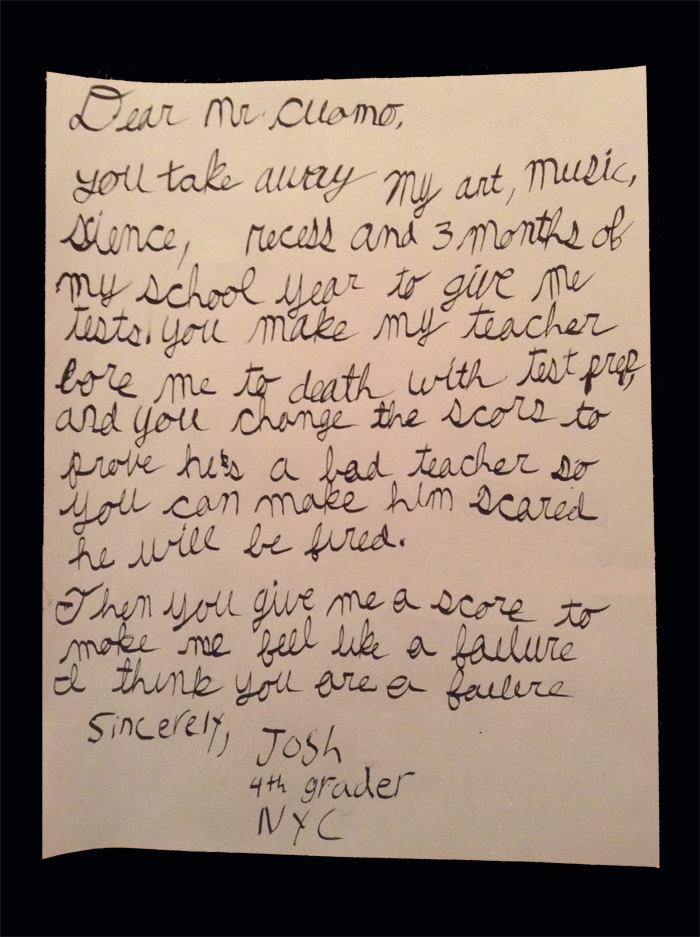 Dear Mr. Cuomo,
you take away my art, music,
sience, recess and 3 months of
my school year to give me
tests. you make my teacher
bore me to death with test prep,
and you change the scors to
prove he's a bad teacher so
you can make him scared
he will be fired.
Then you give me a score to
make me feel like a failure
I think you are a failere
Sincerely,
Josh
4th grader
NYC